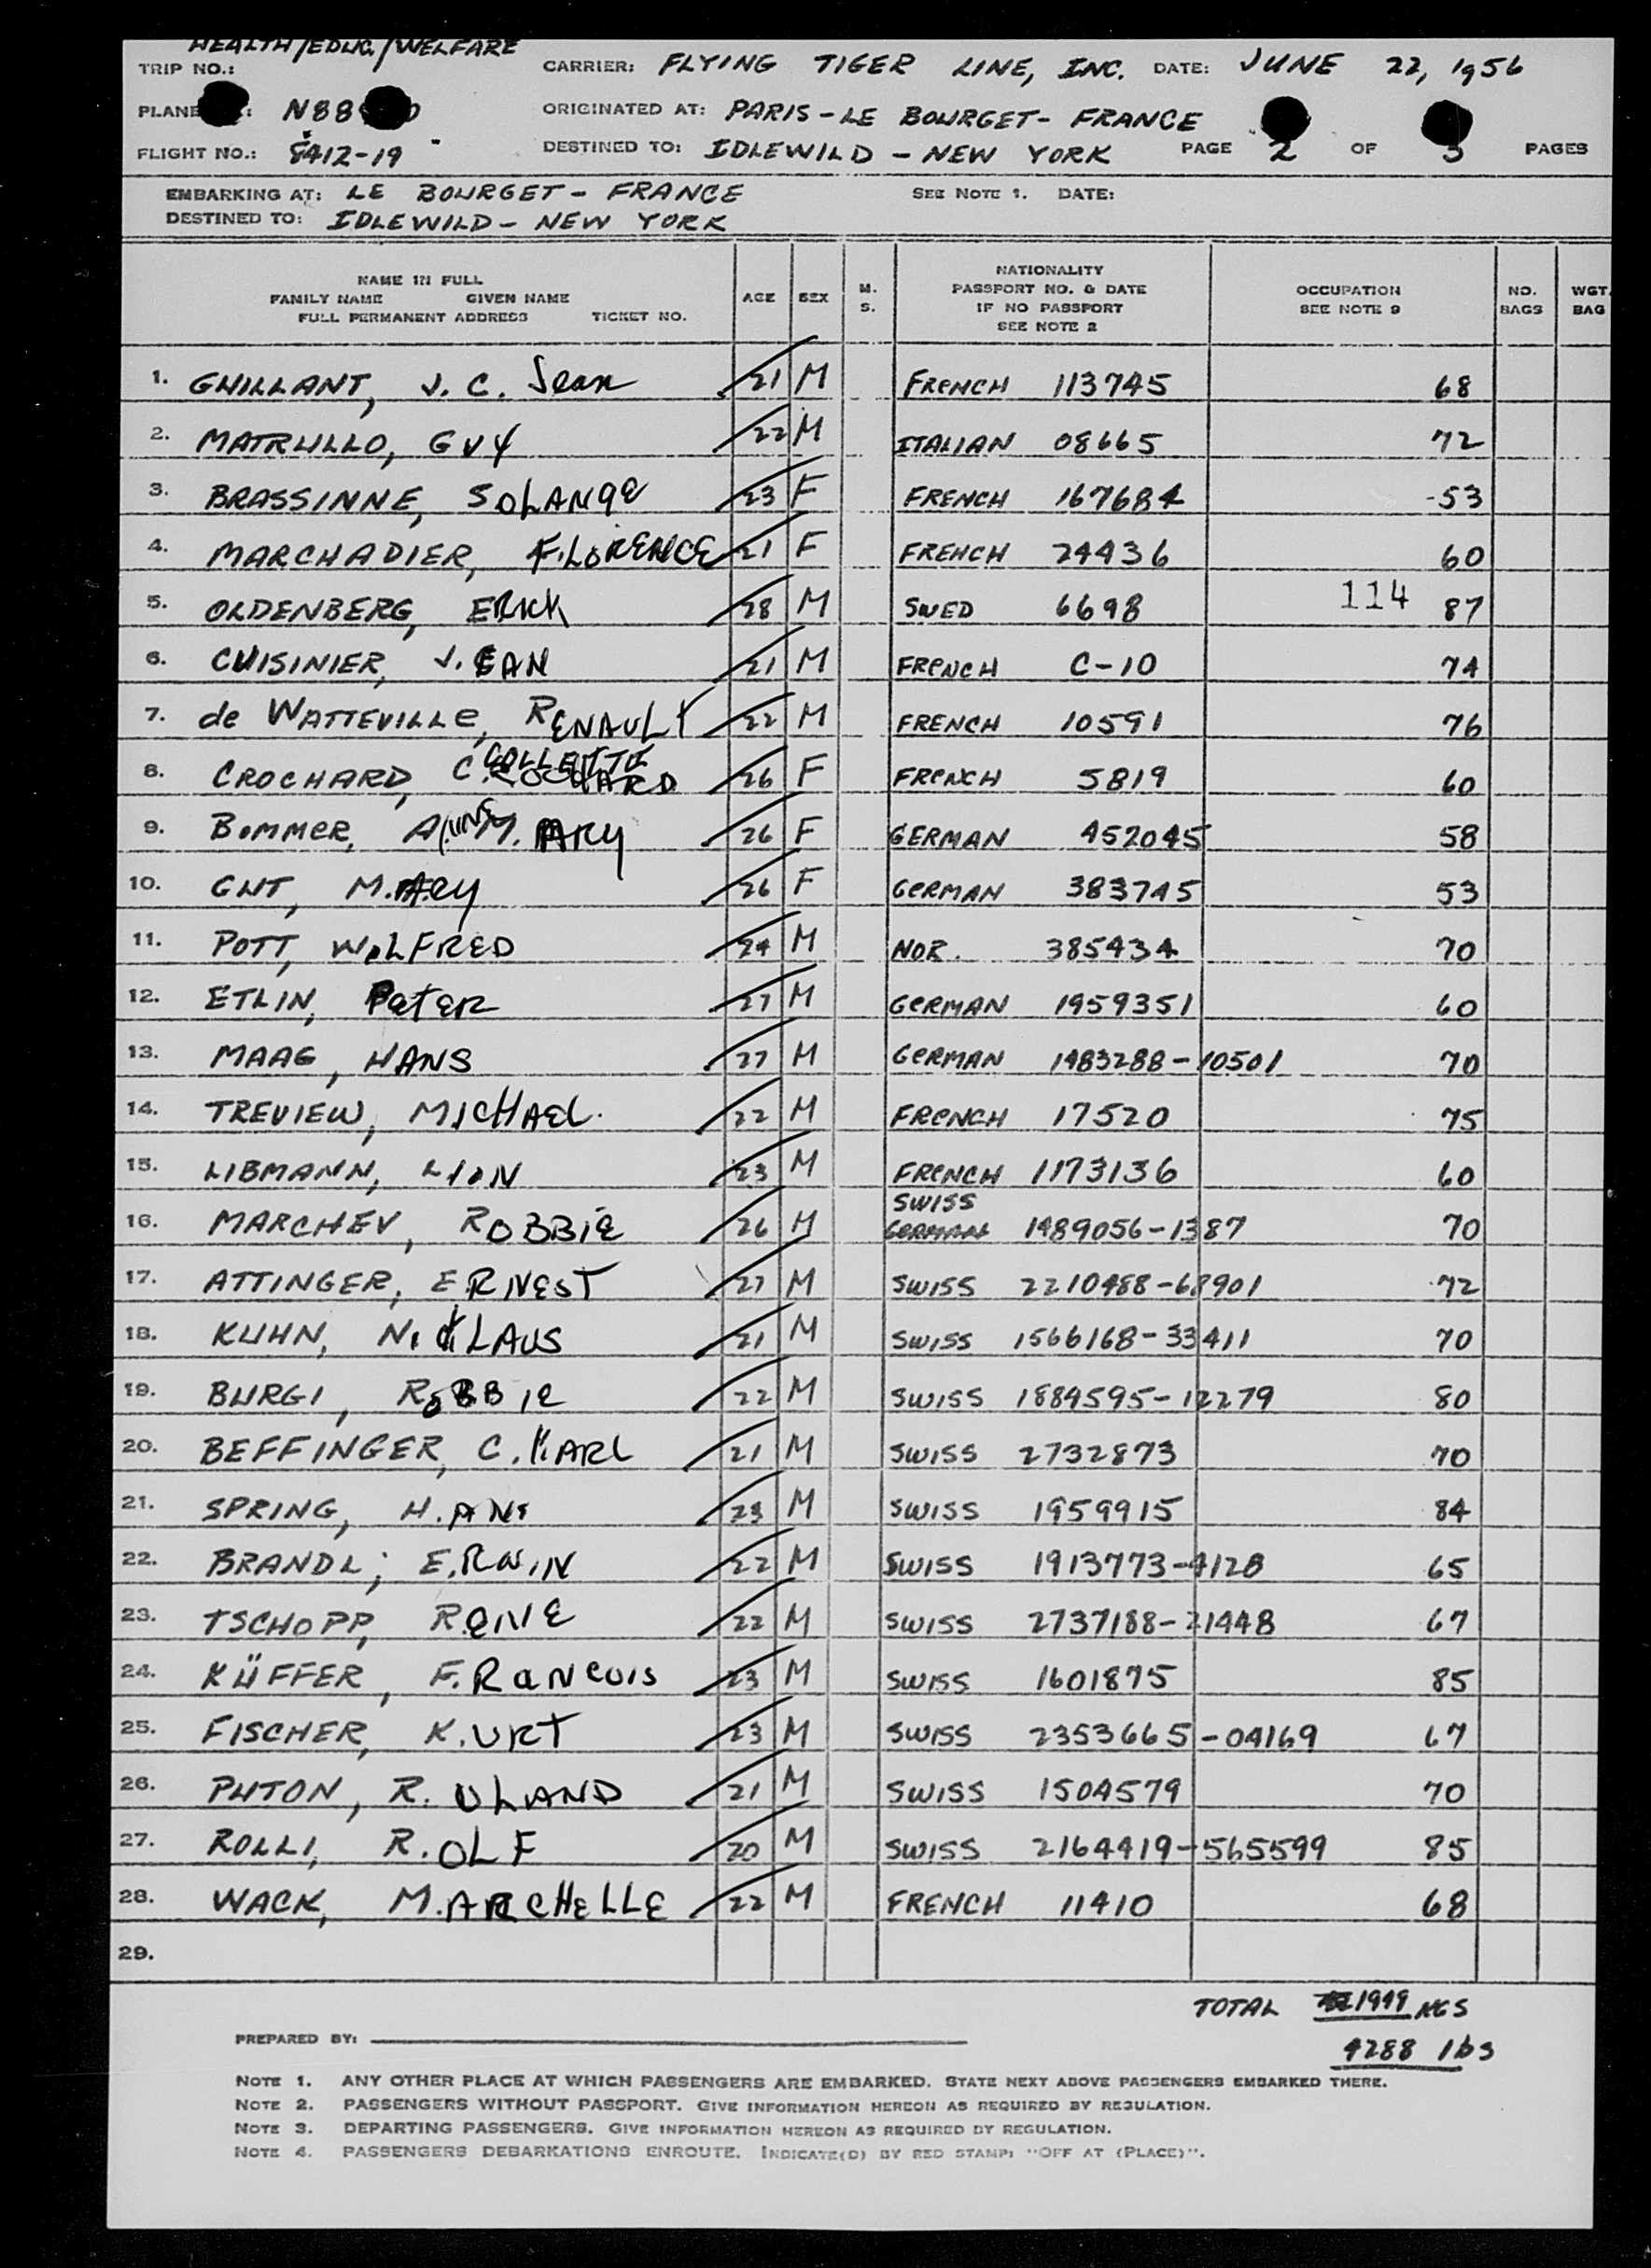 HEALTH/EDUC./WELFARE
TRIP NO.: CARRIER: FLYING TIGER LINE, INC. DATE: JUNE 22, 1956
PLANE N88 ORIGINATED AT: PARIS-LE BOURGET-FRANCE
FLIGHT NO.: 8412-19 DESTINED TO: IDLEWILD - NEW YORK PAGE 2 OF 3 PAGES
EMBARKING AT: LE BOURGET - FRANCE SEE NOTE 1. DATE:
DESTINED TO: IDLEWILD - NEW YORK
NAME IN FULL
FAMILY NAME GIVEN NAME
FULL PERMANENT ADDRESS TICKET NO.
AGE SEX
M.
S.
NATIONALITY
PASSPORT NO. & DATE
IF NO PASSPORT
SEE NOTE 2
OCCUPATION
SEE NOTE 9
NO.
BAGS
WGT.
BAG
1. GUILLANT, J. C. Jean 21 M FRENCH 113745 68
2. MATRULLO, GUY 22 M ITALIAN 08665 72
3. BRASSINNE, SOLANGE 23 F FRENCH 167684 53
4. MARCHADIER, F.LORENCE 21 F FRENCH 24436 60
5. OLDENBERG, ERICK 28 M SWED 6698 114 87
6. CUISINIER, J.EAN 21 M FRENCH C-10 74
7. de WATTEVILLE, RENAULT 22 M FRENCH 10591 76
8. CROCHARD, C. COLLETTE 26 F FRENCH 5819 60
9. BOMMER, M.ARY 26 F GERMAN 452045 58
10. GUT, M.ARY 26 F GERMAN 383745 53
11. POTT, WOLFRED 24 M NOR. 385434 70
12. ETLIN, PETER 27 M GERMAN 1959351 60
13. MAAG, HANS 27 M GERMAN 1483288-10501 70
14. TREVIEW, MICHAEL. 22 M FRENCH 17520 75
15. LIBMANN, LION 23 M FRENCH 1173136 60
16. MARCHEV, ROBBIE 26 M SWISS GERMAN 1489056-1387 70
17. ATTINGER, ERNEST 27 M SWISS 2210488-68901 72
18. KUHN, NICKLAUS 21 M SWISS 1566168-33411 70
19. BURGI, ROBBIE 22 M SWISS 1884595-12279 80
20. BEFFINGER, C. KARL 21 M SWISS 2732873 70
21. SPRING, H.ANS 23 M SWISS 1959915 84
22. BRANDL; E.RWIN 22 M SWISS 1913773-4128 65
23. TSCHOPP, R.ENE 22 M SWISS 2737188-21448 67
24. KÜFFER, F.RANCOIS 23 M SWISS 1601875 85
25. FISCHER, K.URT 23 M SWISS 2353665-04169 67
26. PUTON, R. OLAND 21 M SWISS 1504579 70
27. ROLLI, R.OLF 20 M SWISS 2164419-565599 85
28. WACK, M.ARCHELLE 22 M FRENCH 11410 68
29.
TOTAL 1949 KGS
4288 lbs
PREPARED BY:
NOTE 1. ANY OTHER PLACE AT WHICH PASSENGERS ARE EMBARKED. STATE NEXT ABOVE PASSENGERS EMBARKED THERE.
NOTE 2. PASSENGERS WITHOUT PASSPORT. GIVE INFORMATION HEREON AS REQUIRED BY REGULATION.
NOTE 3. DEPARTING PASSENGERS. GIVE INFORMATION HEREON AS REQUIRED BY REGULATION.
NOTE 4. PASSENGERS DEBARKATIONS ENROUTE. INDICATE(D) BY RED STAMP: "OFF AT (PLACE)".